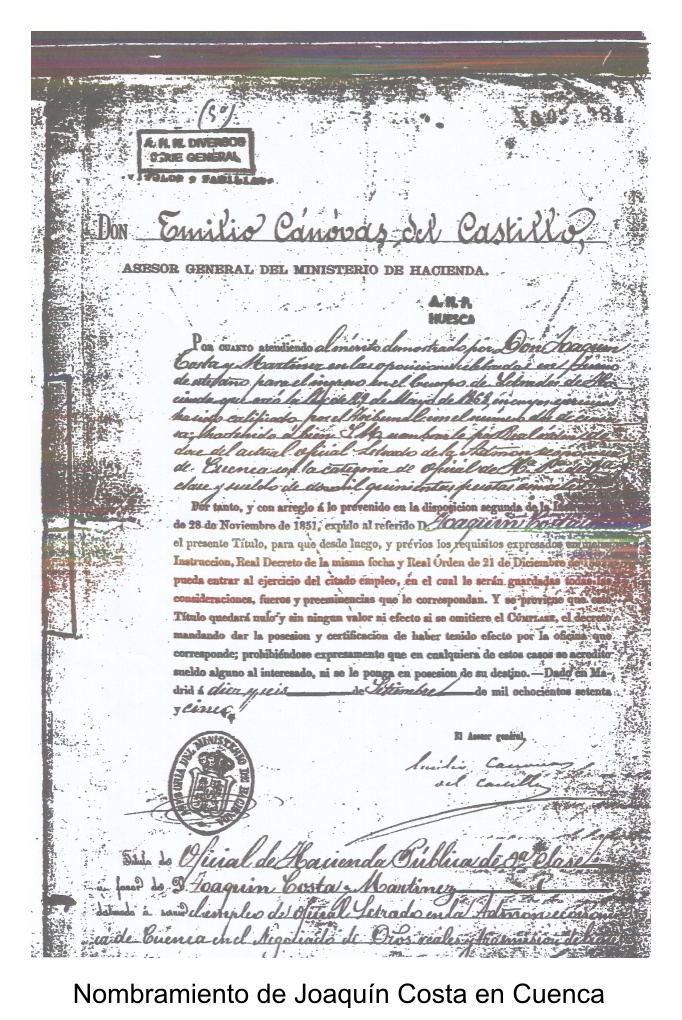 (5º)
A. H. N. DIVERSOS
SERIE GENERAL
TITULOS Y FAMILIAS
DON Emilio Cánovas del Castillo,
ASESOR GENERAL DEL MINISTERIO DE HACIENDA.
A.H.P.
HUESCA
POR CUANTO atendiendo al mérito demostrado por Don Joaquin
Costa y Martinez en las oposiciones
para el ingreso en el Cuerpo de Letrados de Ha-
cienda que creó la Ley de 29 de Mayo de 1868,
ha sido calificado por el tribunal con el número
del actual oficial Letrado de la Admon
de Cuenca con la categoria de oficial de
clase y sueldo de dos mil quinientas pesetas
Por tanto, y con arreglo á lo prevenido en la disposicion segunda de la
de 28 de Noviembre de 1851, expido al referido D. Joaquin Costa
el presente Título, para que desde luego, y prévios los requisitos expresados
Instruccion, Real Decreto de la misma fecha y Real Órden de 21 de Diciembre
pueda entrar al ejercicio del citado empleo, en el cual le serán guardadas todas las
consideraciones, fueros y preeminencias que le correspondan. Y se previene que este
Título quedará nulo y sin ningun valor ni efecto si se omitiere el CÚMPLASE, el decreto
mandando dar la posesion y certificacion de haber tenido efecto por la oficina que
corresponde; prohibiéndose expresamente que en cualquiera de estos casos se acredite
sueldo alguno al interesado, ni se le ponga en posesion de su destino.—Dado en Ma-
drid á diez y seis de Setiembre de mil ochocientos setenta
y cinco.
El Asesor general,
Emilio Canovas
del Castillo
ASESORIA DEL MINISTERIO DE HACIENDA
Título de Oficial de Hacienda Pública de clase
a favor de D. Joaquin Costa y Martinez
empleo de oficial Letrado en la Admon económi-
ca de Cuenca en el Negociado de Dros reales y trasmision de
Nombramiento de Joaquín Costa en Cuenca